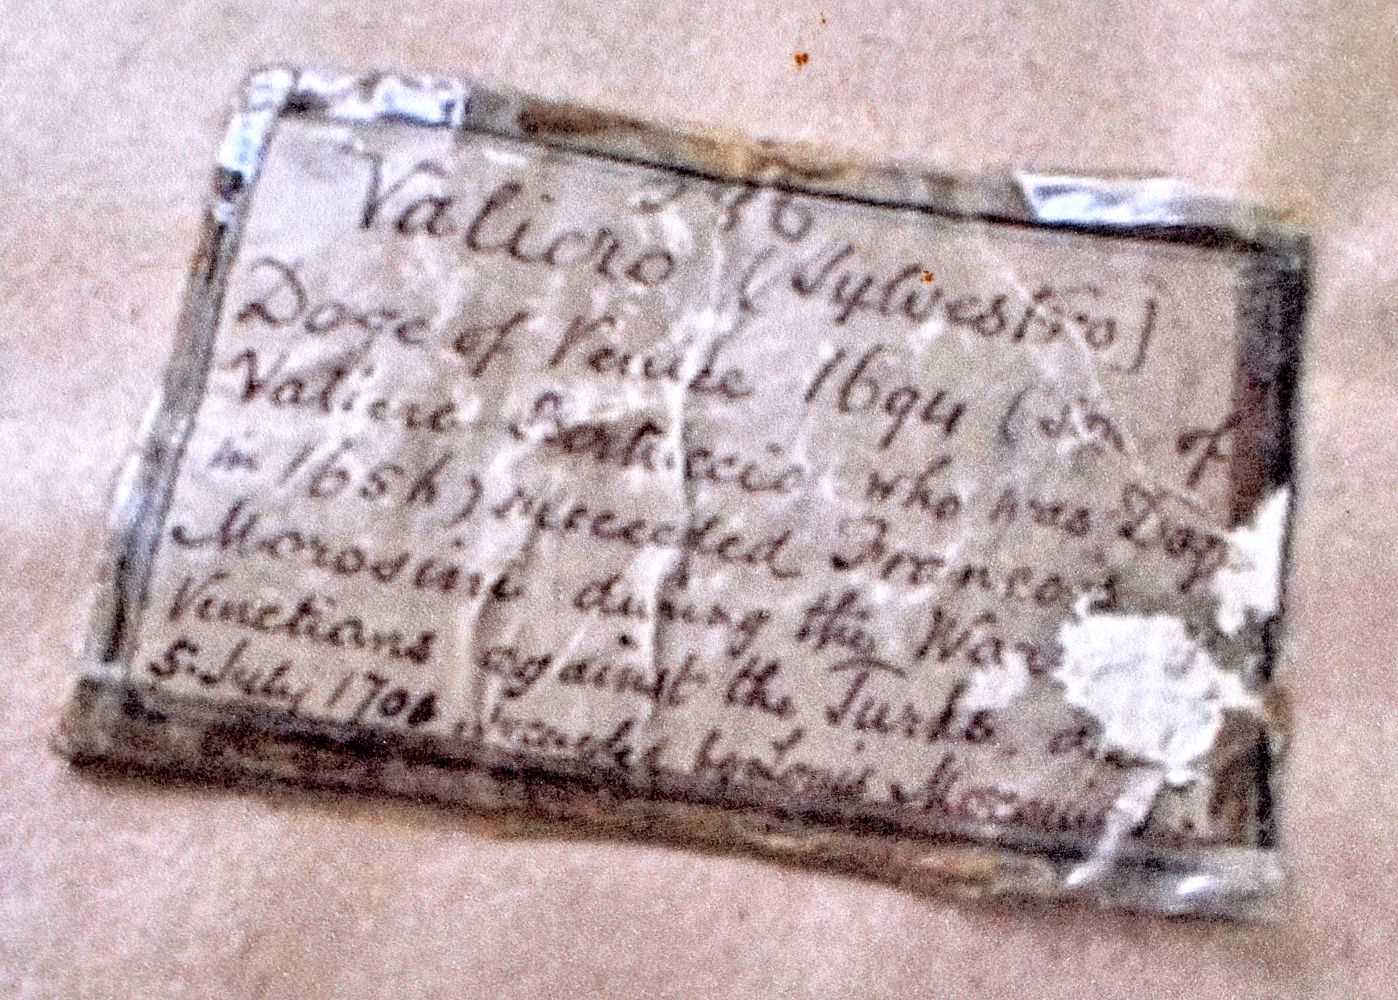 Valiero (Sylvestro]
Doge of Venice 1694 (son of
Valiere who was Doge
in 1656) succeeded Francois
Morosini during the War
Venetians against the Turks,
5. July 1700 by Louis